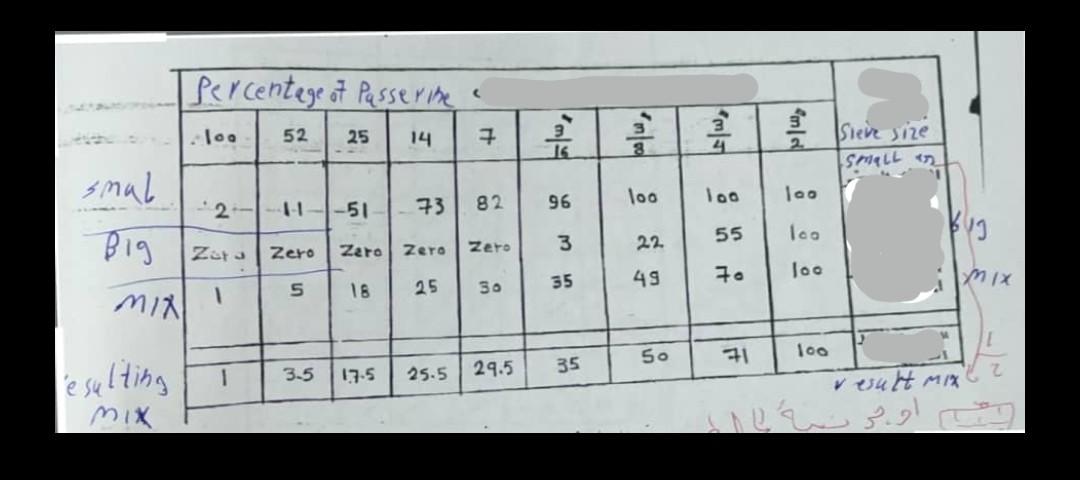 Percentage of Passerine
100 52 25 14 7 3/16" 3/8" 3/4" 3/2" Sieve size
small
smal 2 11 51 73 82 96 100 100 100
Big Zero Zero Zero Zero Zero 3 22 55 100 big
mix 1 5 18 25 30 35 49 70 100 mix
1 3.5 17.5 25.5 29.5 35 50 71 100
1/2
esulting result mix
mix